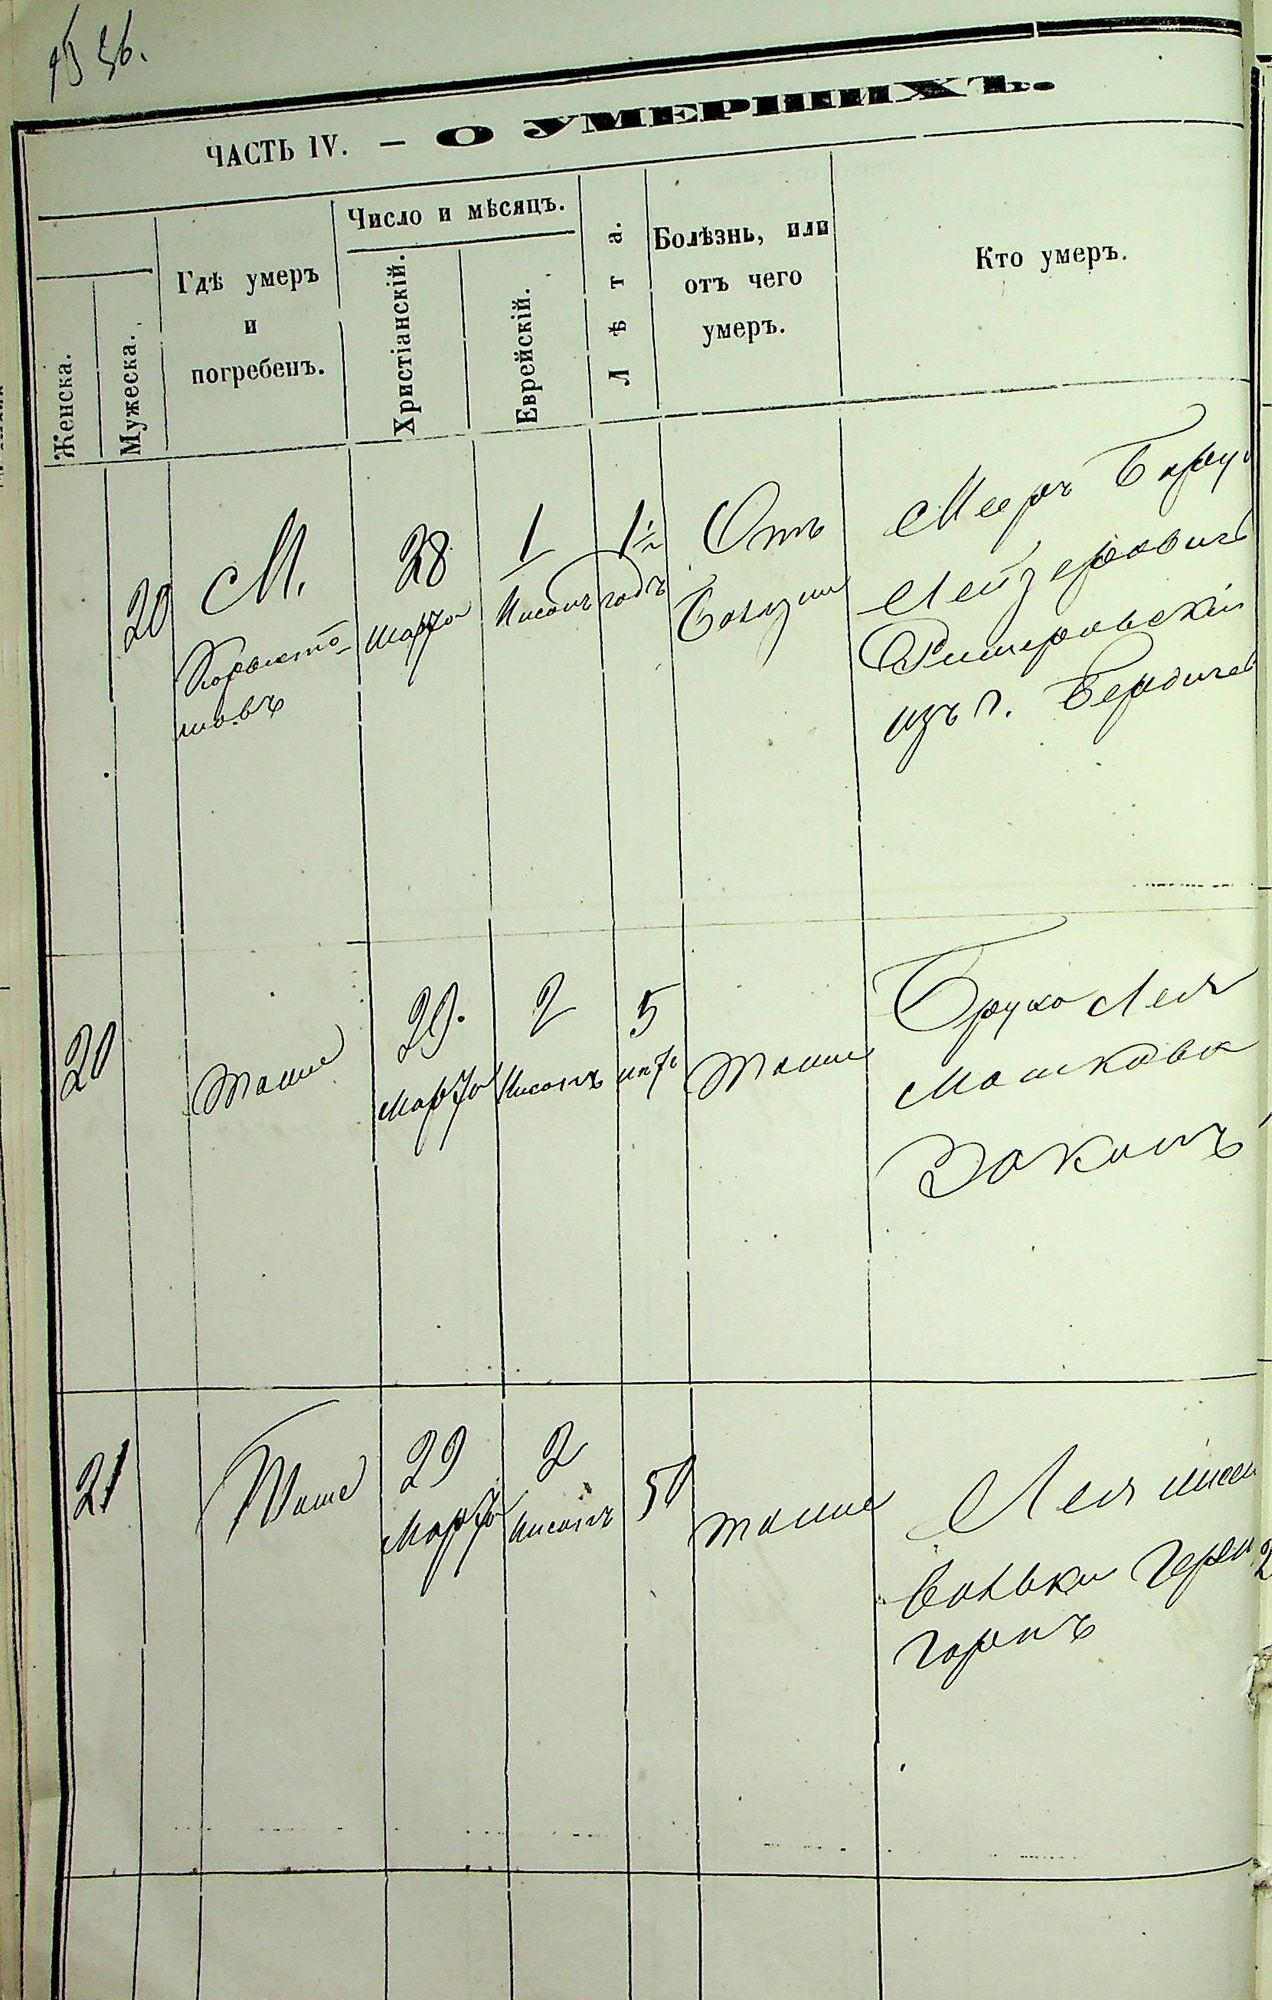 36.
ЧАСТЬ IV. — О УМЕРШИХЪ.
Женска.
Мужеска.
Гдѣ умеръ
и
погребенъ.
Число и мѣсяцъ.
Христіанскій.
Еврейскій.
Лѣта.
Болѣзнь, или
отъ чего
умеръ.
Кто умеръ.
20
М.
Коростышовъ
28
Марта
1
Нисонъ
1½
годъ
Отъ
болезни
Мееръ
Лейзеровичъ
изъ г. Бердичев
20
тоше
29.
Марта
2
Нисонъ
5
летъ
тоше
Бруха Лея
Мошкова
Законъ
21
Тоше
29
Марта
2
Нисонъ
50
тоше
Лея
Вольки